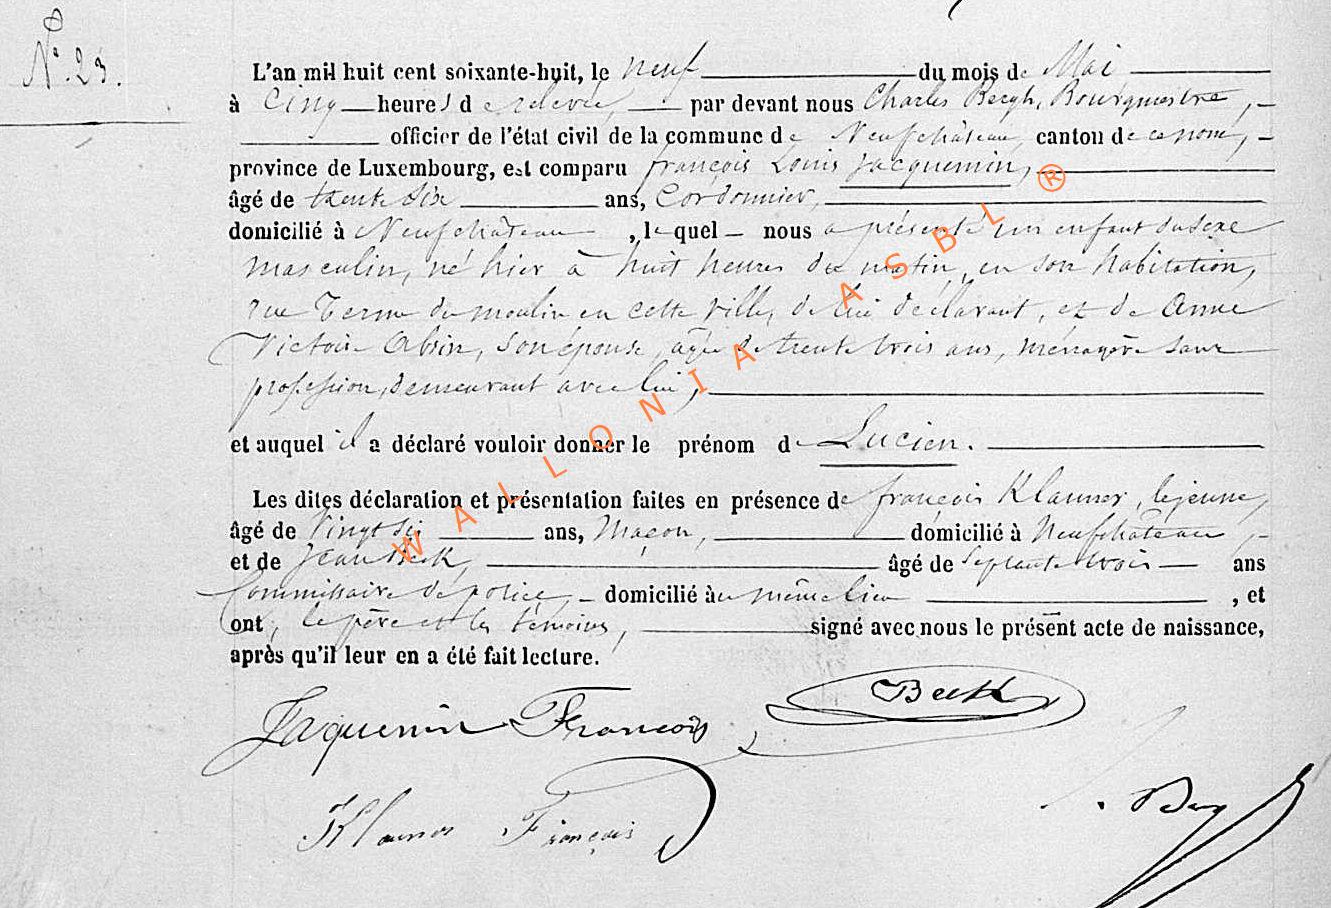 N°. 23.
L'an mil huit cent soixante-huit, le neuf du mois de Mai
à Cinq heures de relevée, par devant nous Charles Bergh, Bourgmestre,
officier de l'état civil de la commune de Neufchâteau, canton de ce nom,
province de Luxembourg, est comparu françois Louis Jacquemin,
âgé de trente six ans, Cordonnier,
domicilié à Neufchâteau, lequel nous a présenté un enfant du sexe
masculin, né hier à huit heures du matin, en son habitation,
rue Terme du moulin en cette ville, de lui déclarant, et de Anne
Victoire Absin, son épouse, agée de trente trois ans, ménagère sans
profession, demeurant avec lui,
et auquel il a déclaré vouloir donner le prénom de Lucien.
Les dites déclaration et présentation faites en présence de françois Klauner, lejeune,
âgé de vingt six ans, Maçon, domicilié à Neufchâteau,
et de Jean Beck, âgé de septante trois ans
Commissaire de police, domicilié au même lieu, et
ont, le père et les témoins, signé avec nous le présent acte de naissance,
après qu'il leur en a été fait lecture.
Jaquemin François
Beck
Klauner François
WALLONIA ASBL ®